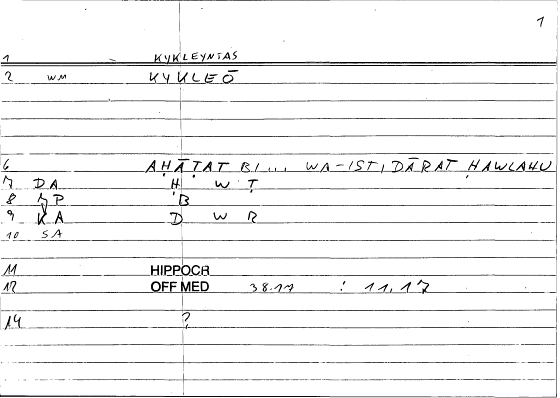 1
1 KYKLEYNTAS
2 WM KYKLEŌ
6 AḤĀṬAT BI... WA-ISTIDĀRAT ḤAWLAHU
7 DA Ḥ W Ṭ
8 B
9 KA D W R
10 SA
11 HIPPOCR
12 OFF MED 38.17 : 11,17
14 ?